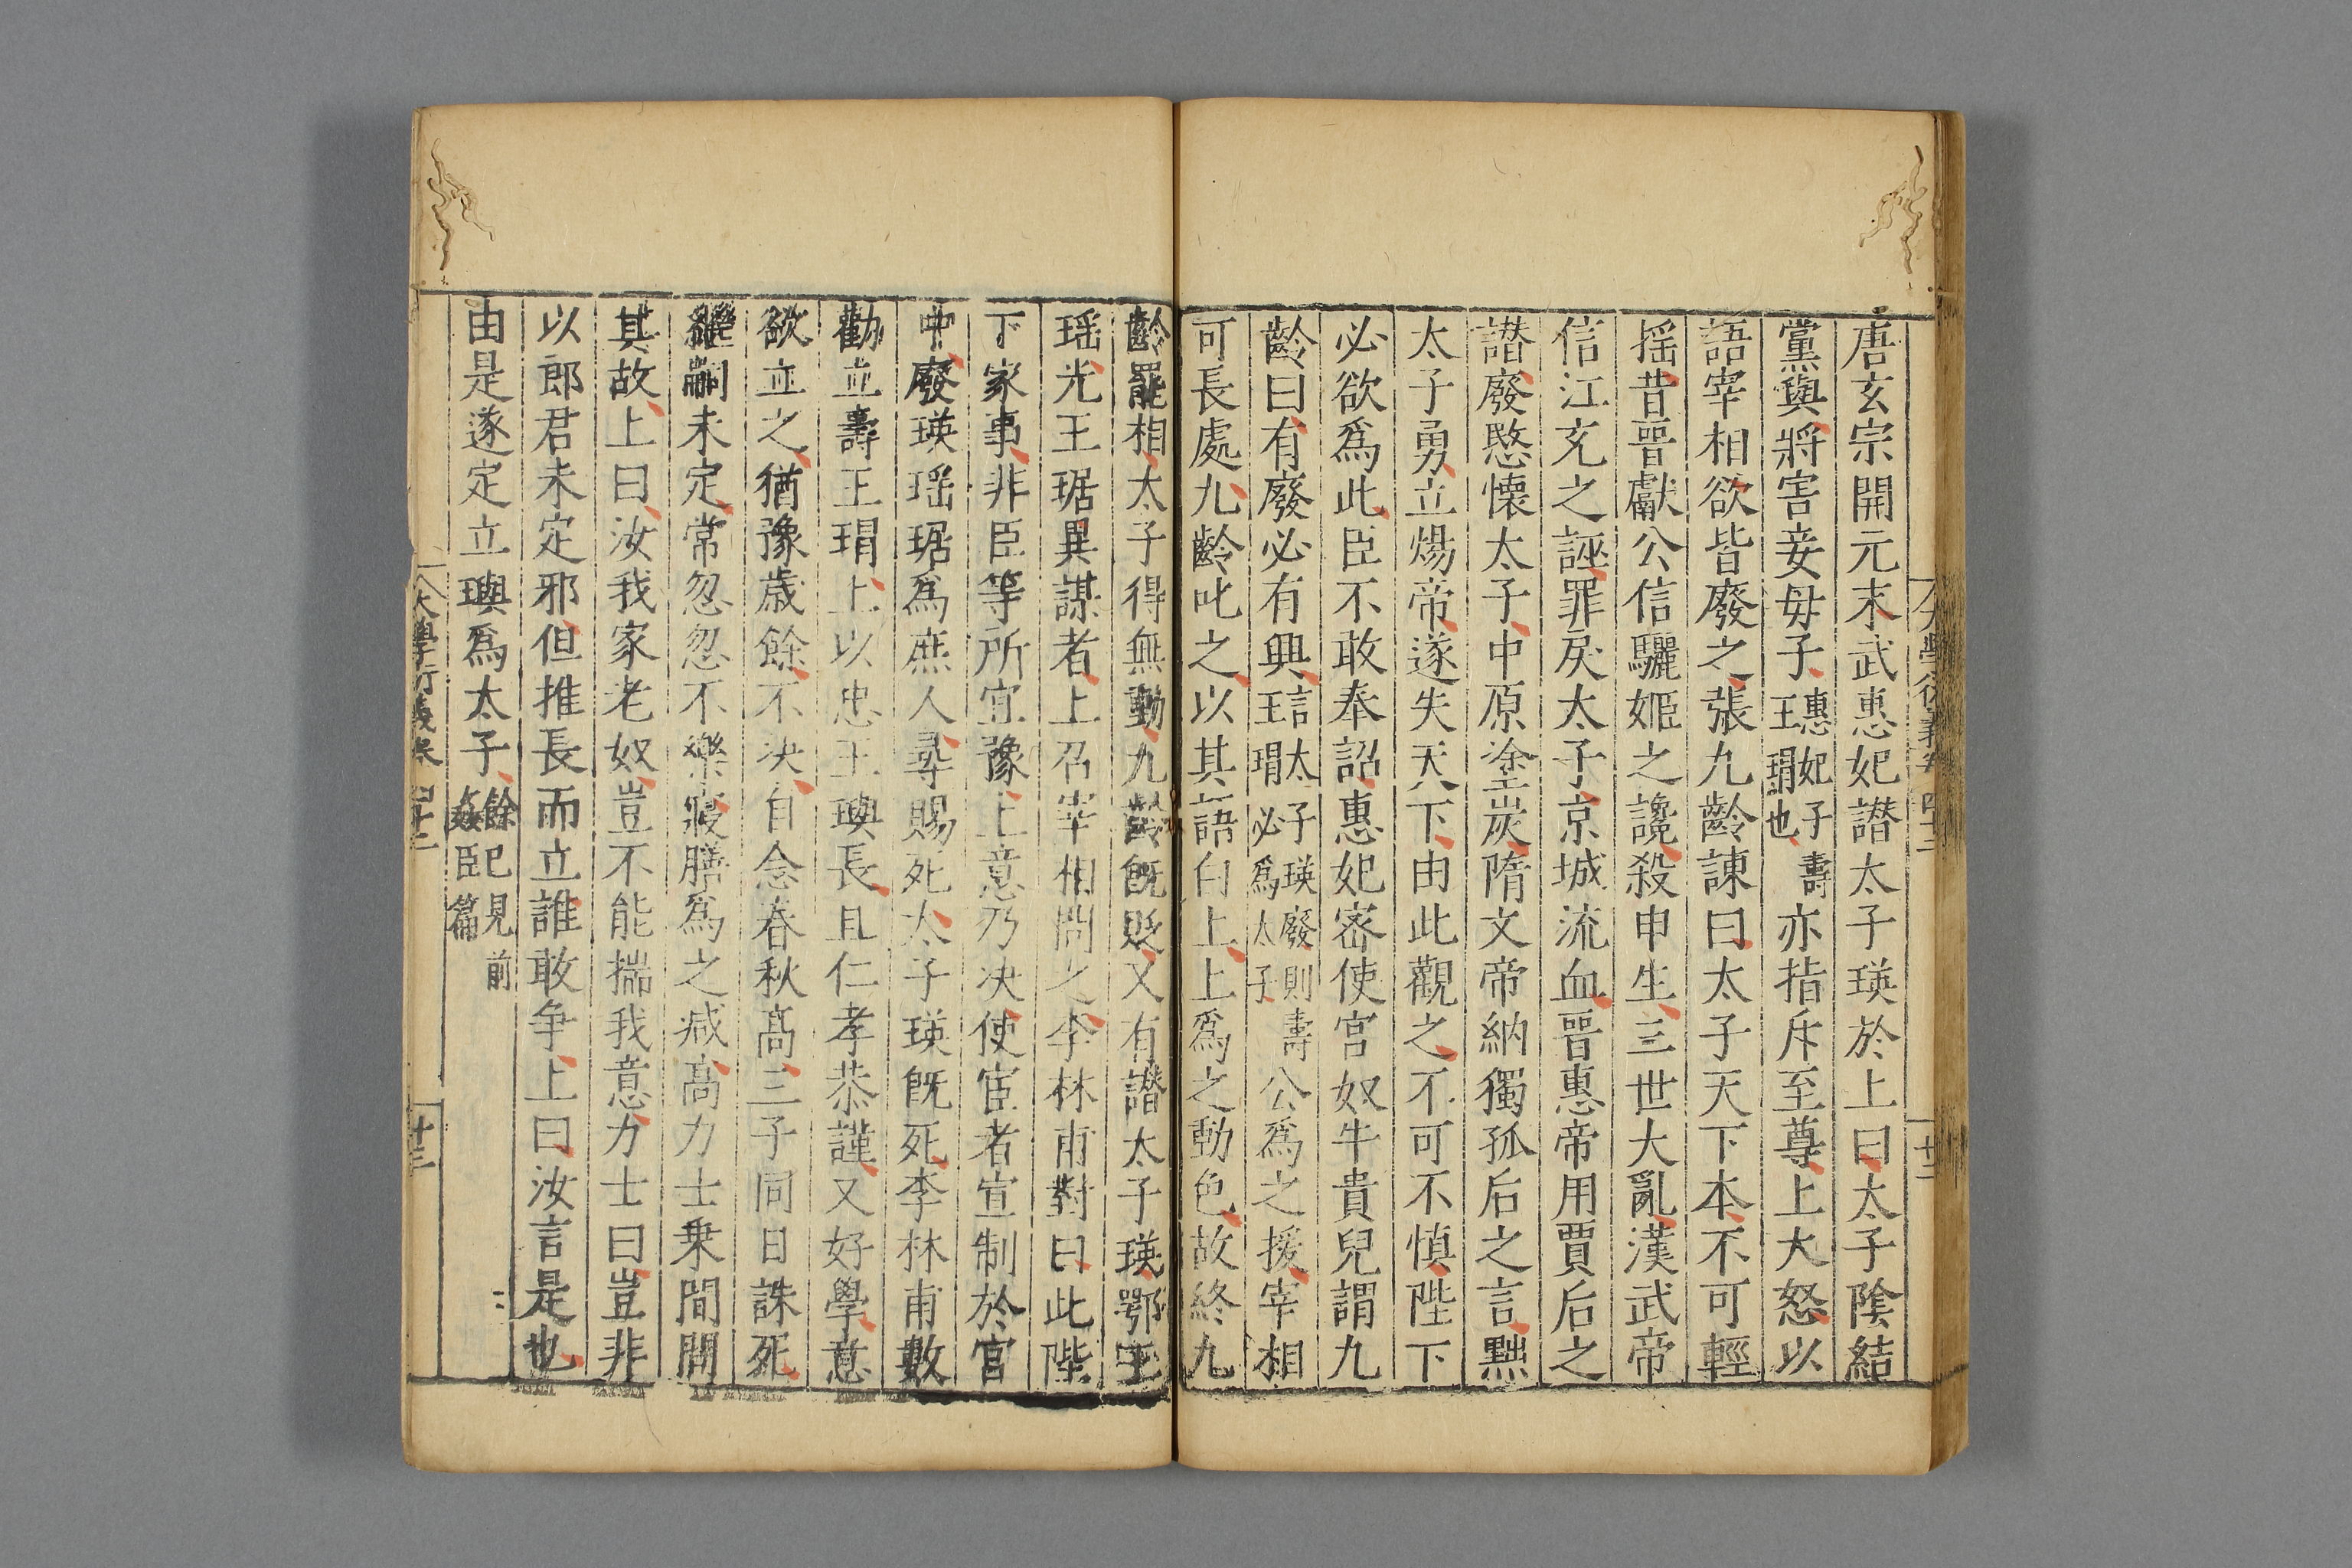 唐玄宗開元末武惠妃譖太子瑛於上曰太子隂結
黨與將害妾毋子惠妃子壽王瑁也亦指斥至尊上大怒以
語宰相欲皆廢之張九齡諌曰太子天下本不可輕
揺昔晋獻公信驪姬之讒殺申生三世大亂漢武帝
信江充之誣罪戾太子京城流血晋惠帝用賈后之
譖廢愍懷太子中原塗炭隋文帝納獨孤后之言黜
太子勇立煬帝遂失天下由此觀之不可不慎陛下
必欲爲此臣不敢奉詔惠妃宻使宫奴牛貴兒謂九
齡曰有廢必有興言太子瑛廢則壽王瑁必爲太子公爲之援宰相
可長處九齡叱之以其語白上上爲之動色故終九
齡罷相太子得無動九齡旣貶又有譖太子瑛鄂王
瑶光王琚異謀者上召宰相問之李林甫對曰此陛
下家事非臣等所宜豫上意乃决使宦者宣制於宫
中廢瑛瑶琚爲庶人尋賜死太子瑛旣死李林甫數
勸立壽王瑁上以忠王璵長且仁孝恭謹又好學意
欲立之猶豫歲餘不决自念春秋髙三子同日誅死
繼嗣未定常忽忽不樂寢膳爲之减髙力士乗間問
其故上曰汝我家老奴豈不能揣我意力士曰豈非
以郎君未定邪但推長而立誰敢争上曰汝言是也
由是遂定立璵爲太子餘已見前姦臣篇
大學衍義卷四十二
十三